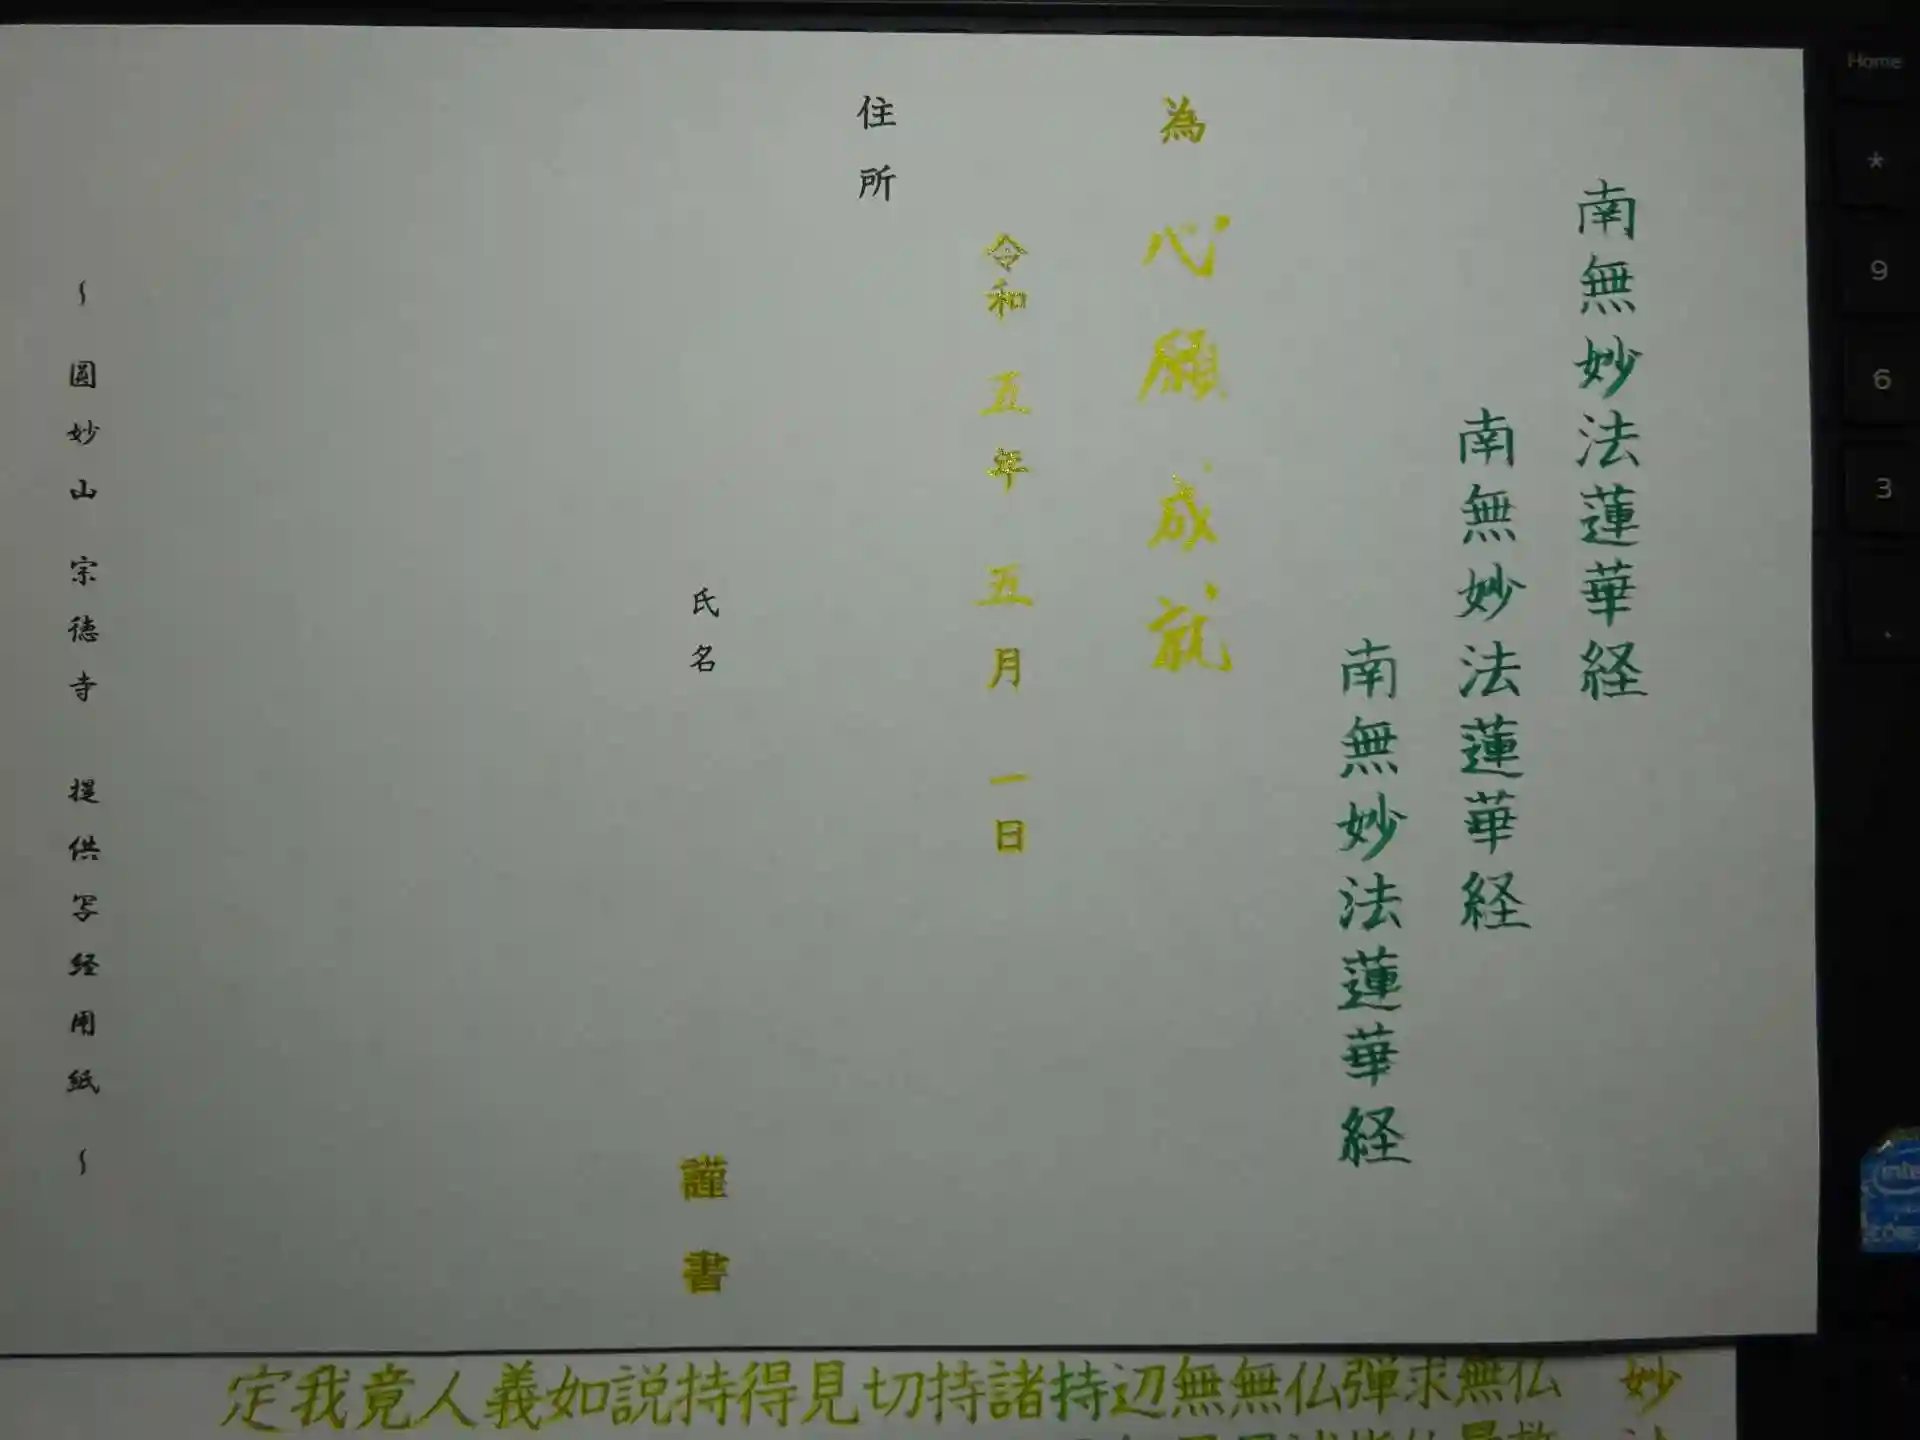 南無妙法蓮華経
南無妙法蓮華経
南無妙法蓮華経
為 心願成就
令和 五年 五月 一日
住所
氏名
謹書
～ 圓妙山 宗徳寺 提供写経用紙 ～
妙
仏無求弾仏無無辺持諸持切見得持説如義人竟我定
Home
*
9
6
3
.
intel
CORE